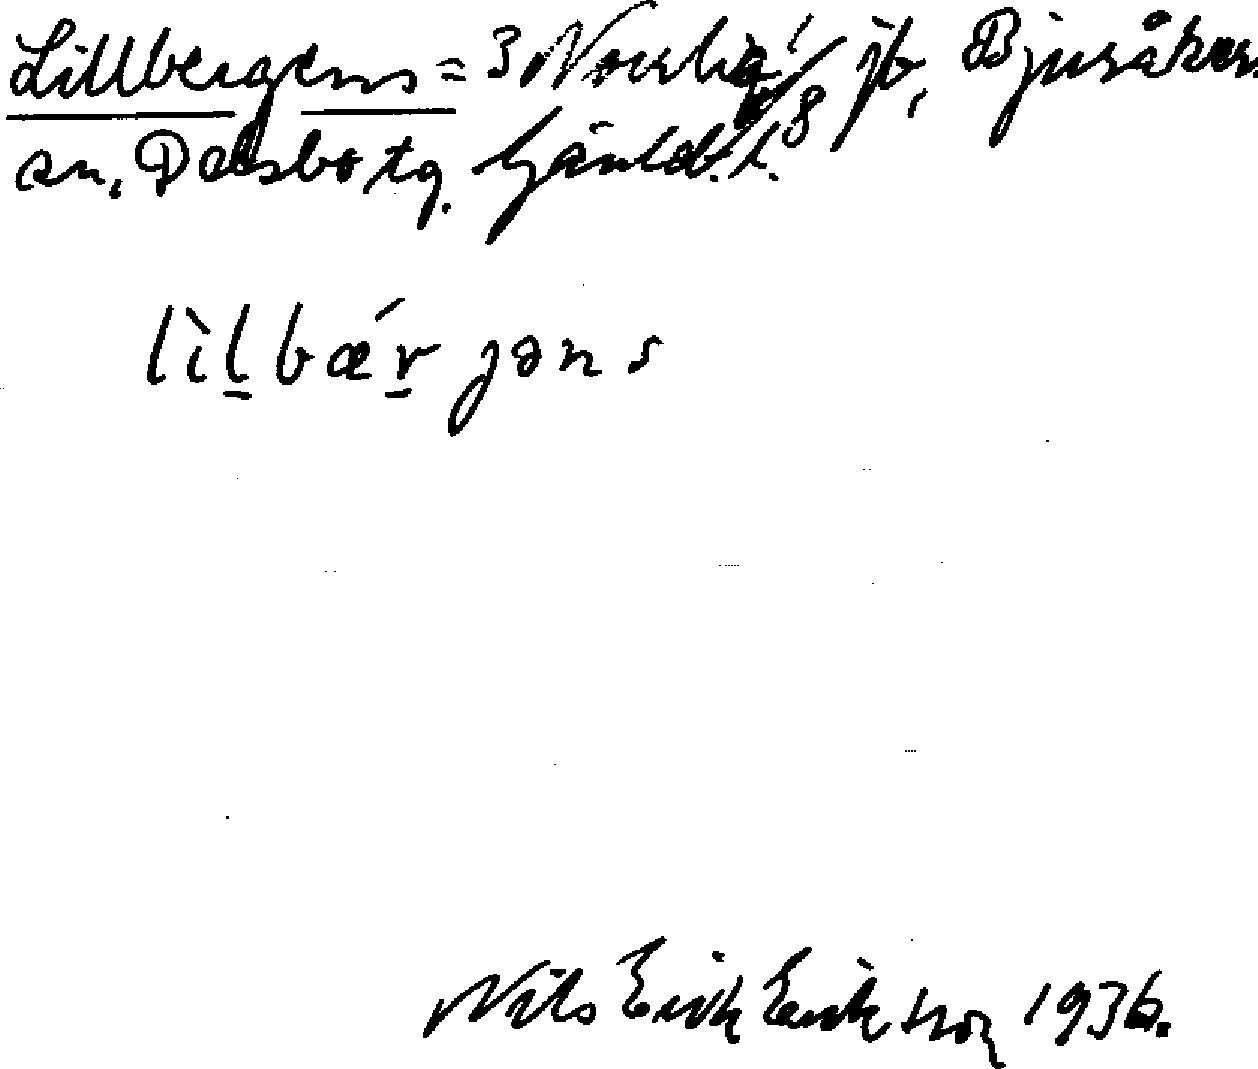 Lillbergens = 3 Norrberg 1/8 jb, Bjuråkers
sn, Delsbo tg. Gävleb. l.
lìlbǽrjəns
Nils Erik Erikson 1936.